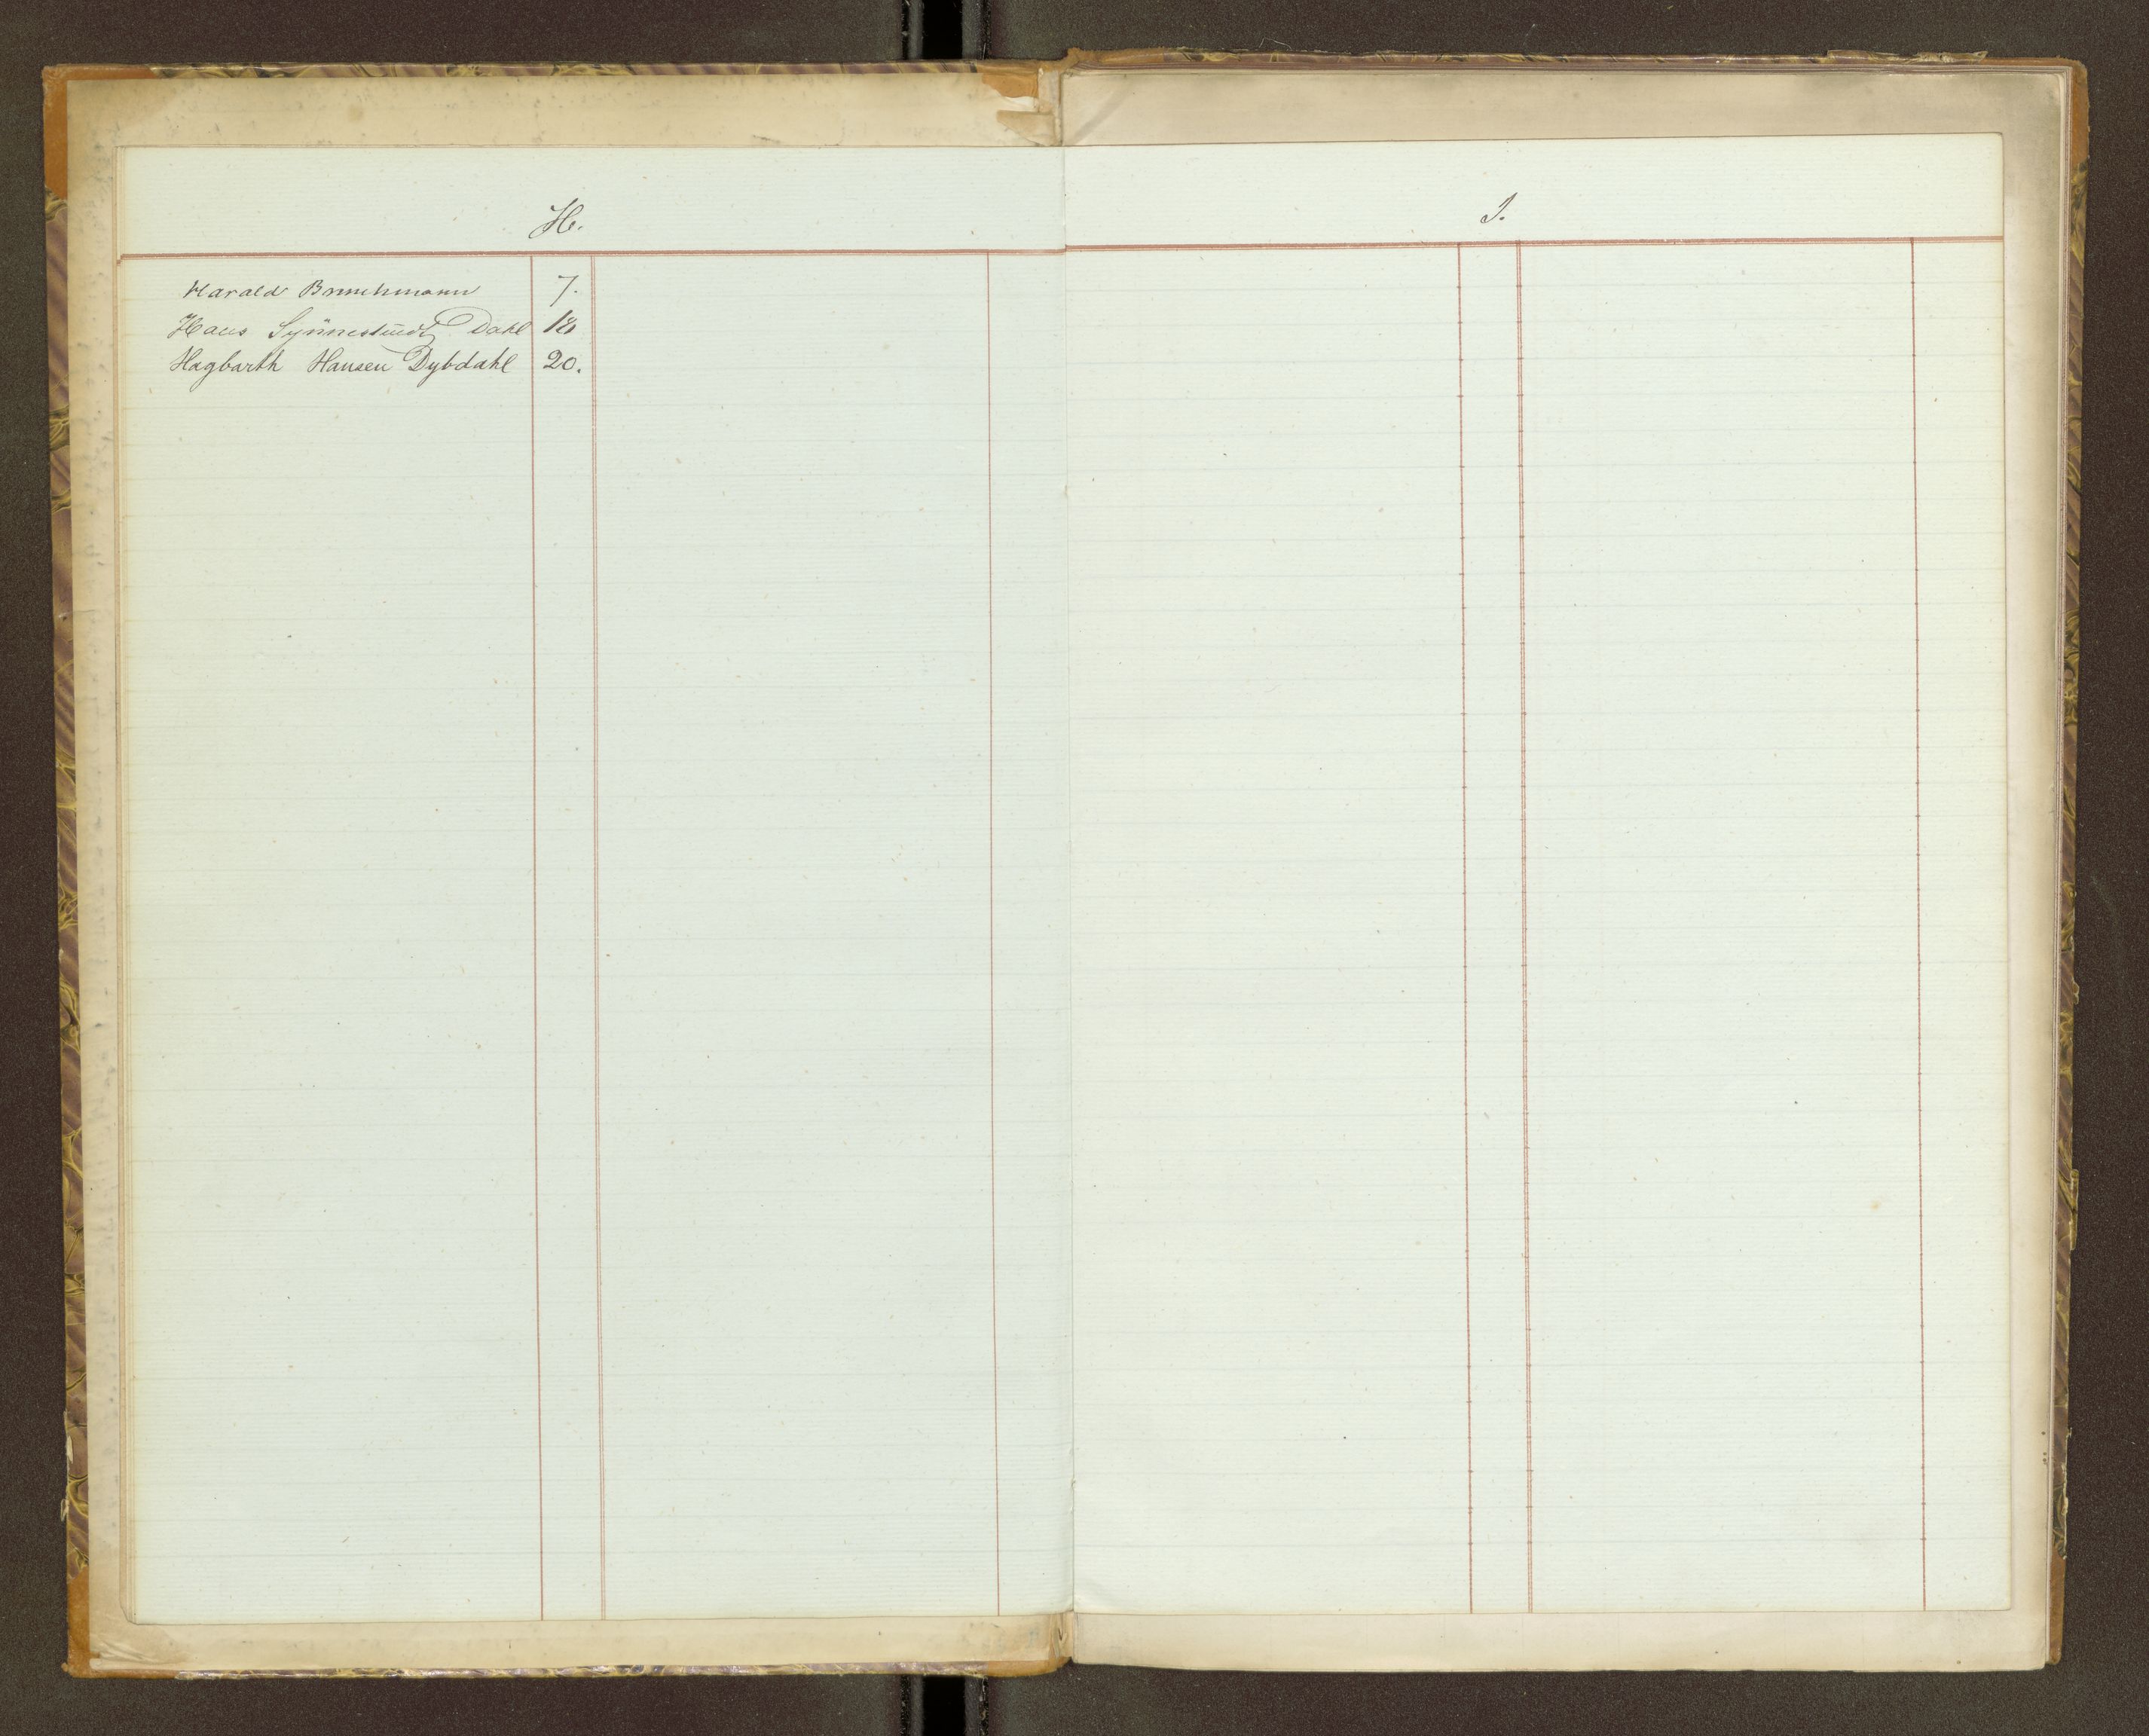 H.
Harald Brunchmann 7.
Hans Synnestvedt Dahl 18
Hagbarth Hansen Dybdahl 20.
I.